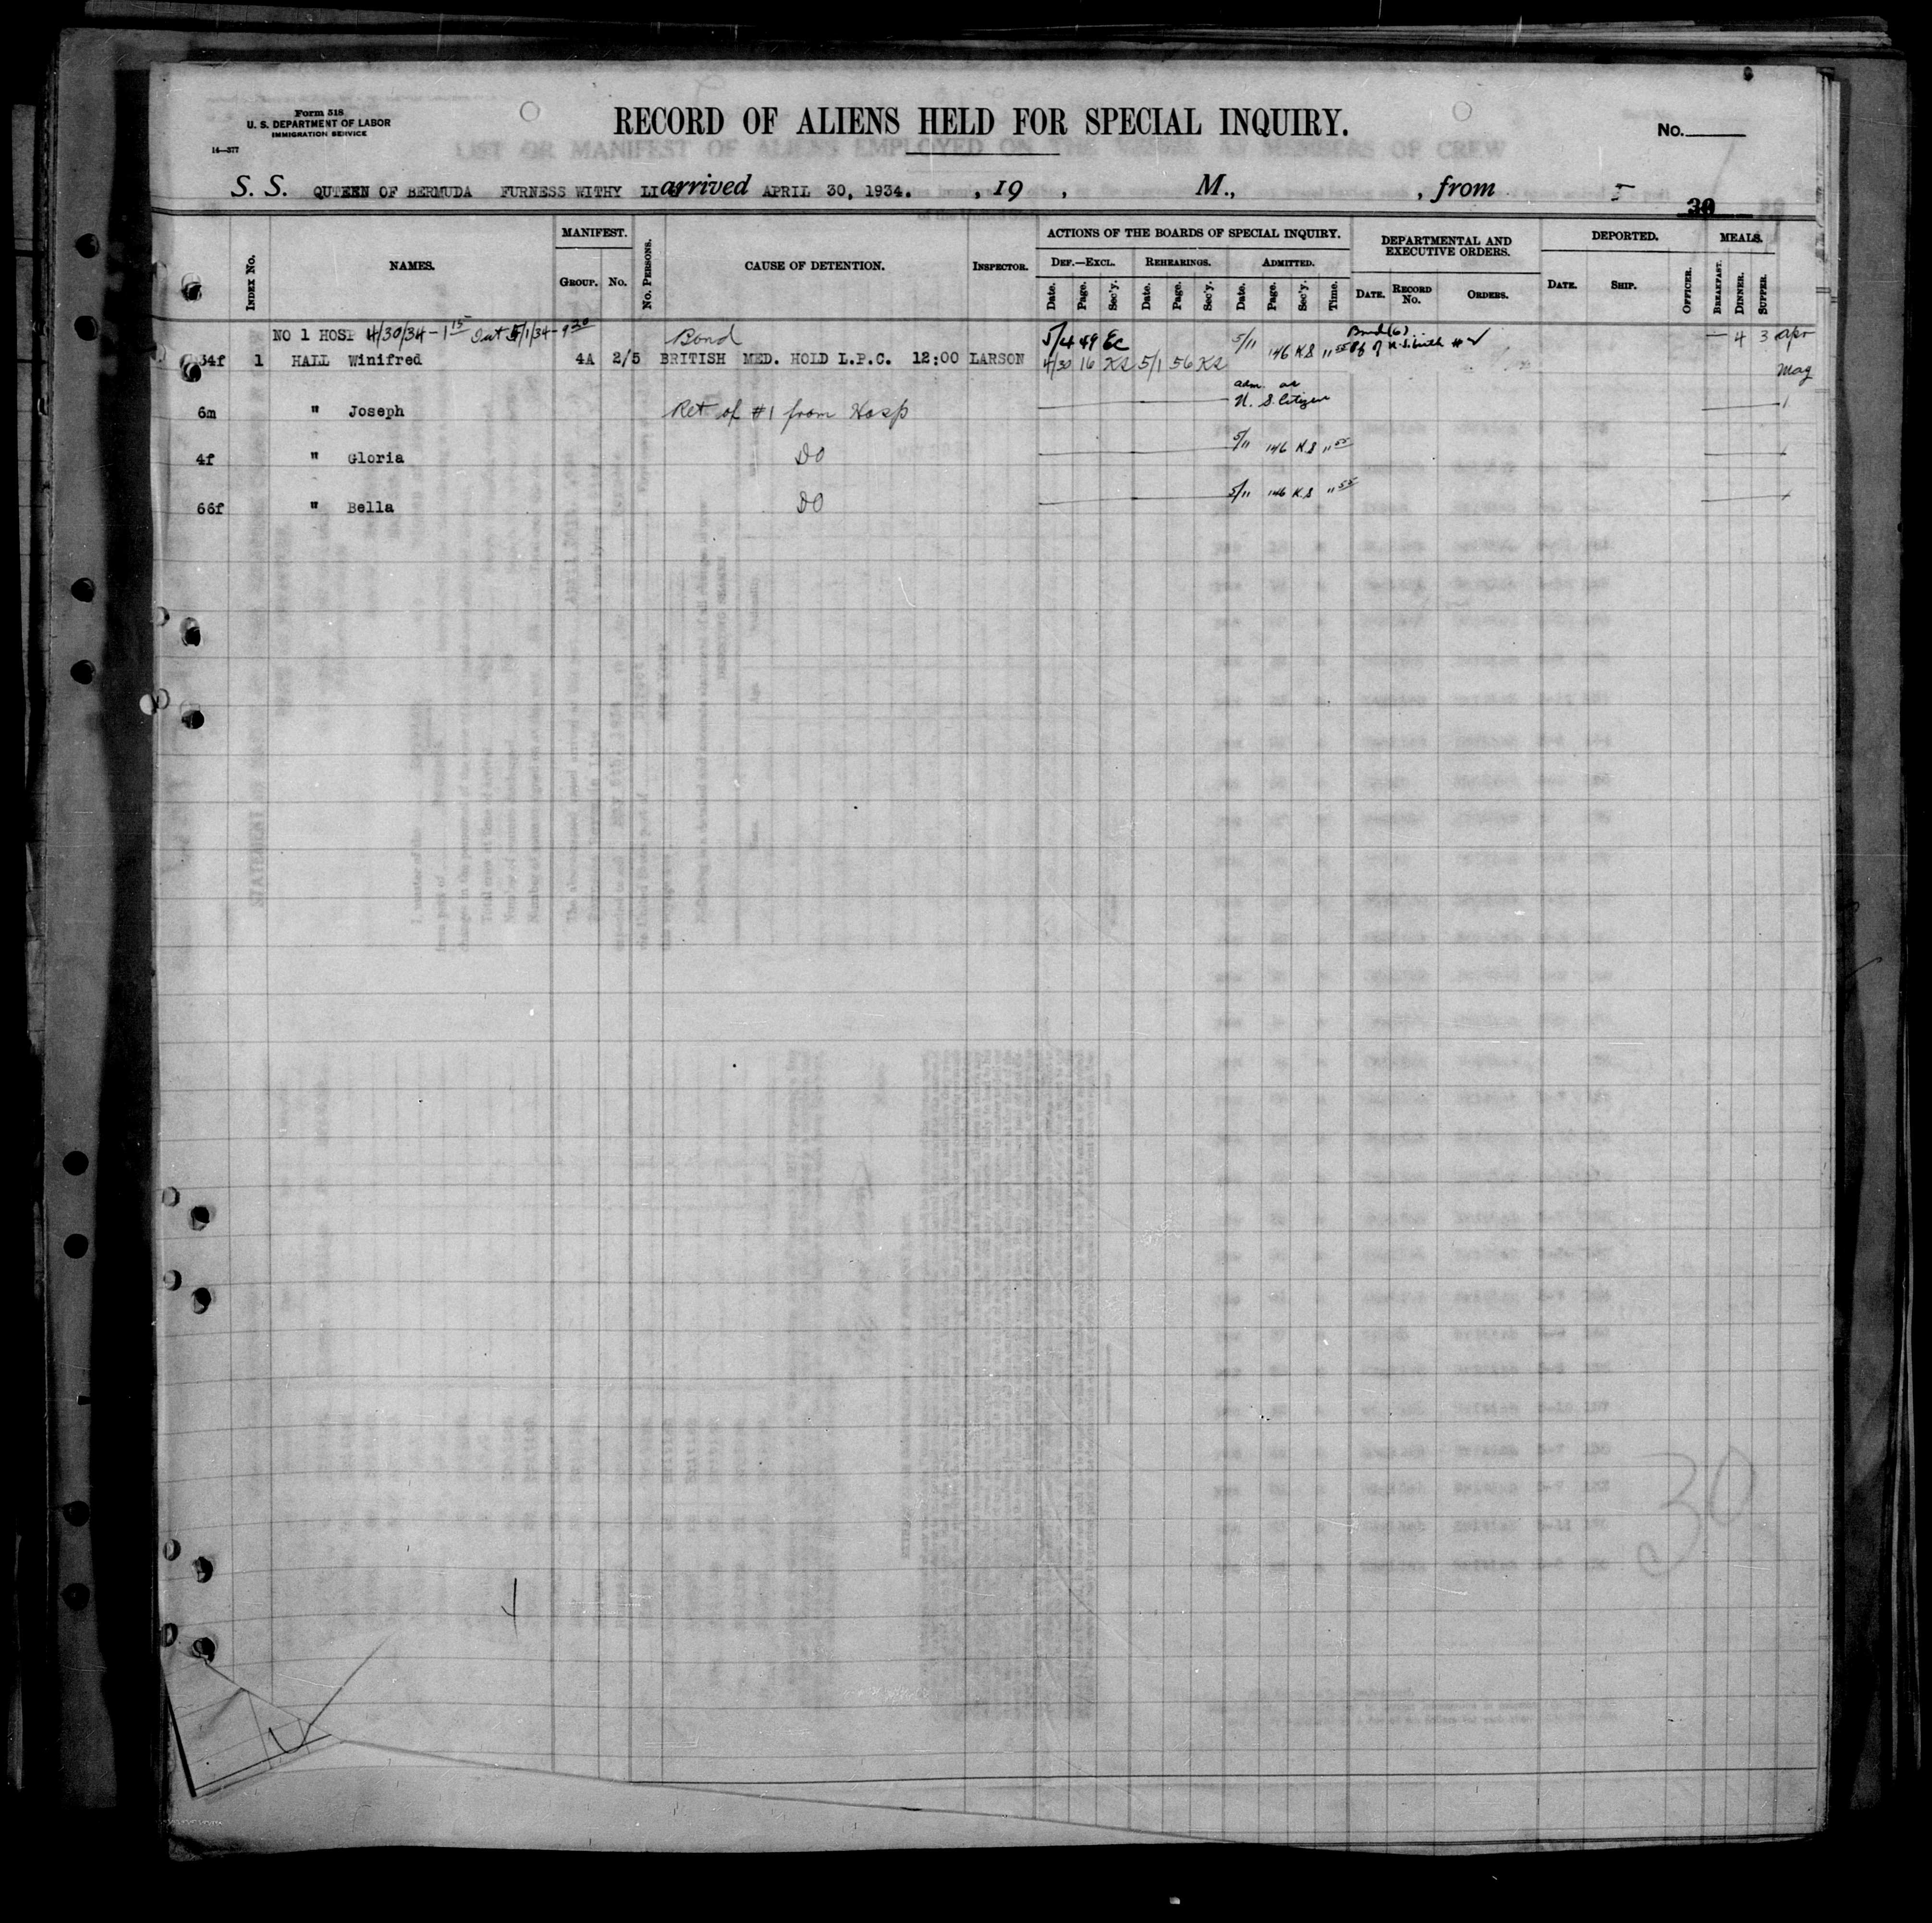 Form 518
U. S. DEPARTMENT OF LABOR
IMMIGRATION SERVICE
14—377
RECORD OF ALIENS HELD FOR SPECIAL INQUIRY.
No.
S. S. QUTEEN OF BERMUDA FURNESS WITHY LI arrived APRIL 30, 1934. , 19 , M., , from
30
INDEX No. NAMES. MANIFEST. GROUP. No. No. PERSONS. CAUSE OF DETENTION. INSPECTOR. ACTIONS OF THE BOARDS OF SPECIAL INQUIRY. DEPARTMENTAL AND EXECUTIVE ORDERS. DEPORTED. MEALS.
DEF.—EXCL. REHEARINGS. ADMITTED.
Date. Page. Sec'y. Date. Page. Sec'y. Date. Page. Sec'y. Time. DATE. RECORD No. ORDERS. DATE. SHIP. OFFICER. BREAKFAST. DINNER. SUPPER.
NO 1 HOSP 4/30/34 - 1 15 Out 5/1/34 - 9 30 Bond 5/4 49 EC 5/11 146 K.S 11 55 Bond (6) — 4 3 Apr
34f 1 HALL Winifred 4A 2/5 BRITISH MED. HOLD L.P.C. 12:00 LARSON 4/30 16 KS 5/1 56 KS May
6m " Joseph Ret of #1 from Hosp adm. as U. S. Citizen
4f " Gloria DO 5/11 146 K.S 11 55
66f " Bella DO 5/11 146 K.S 11 55
30